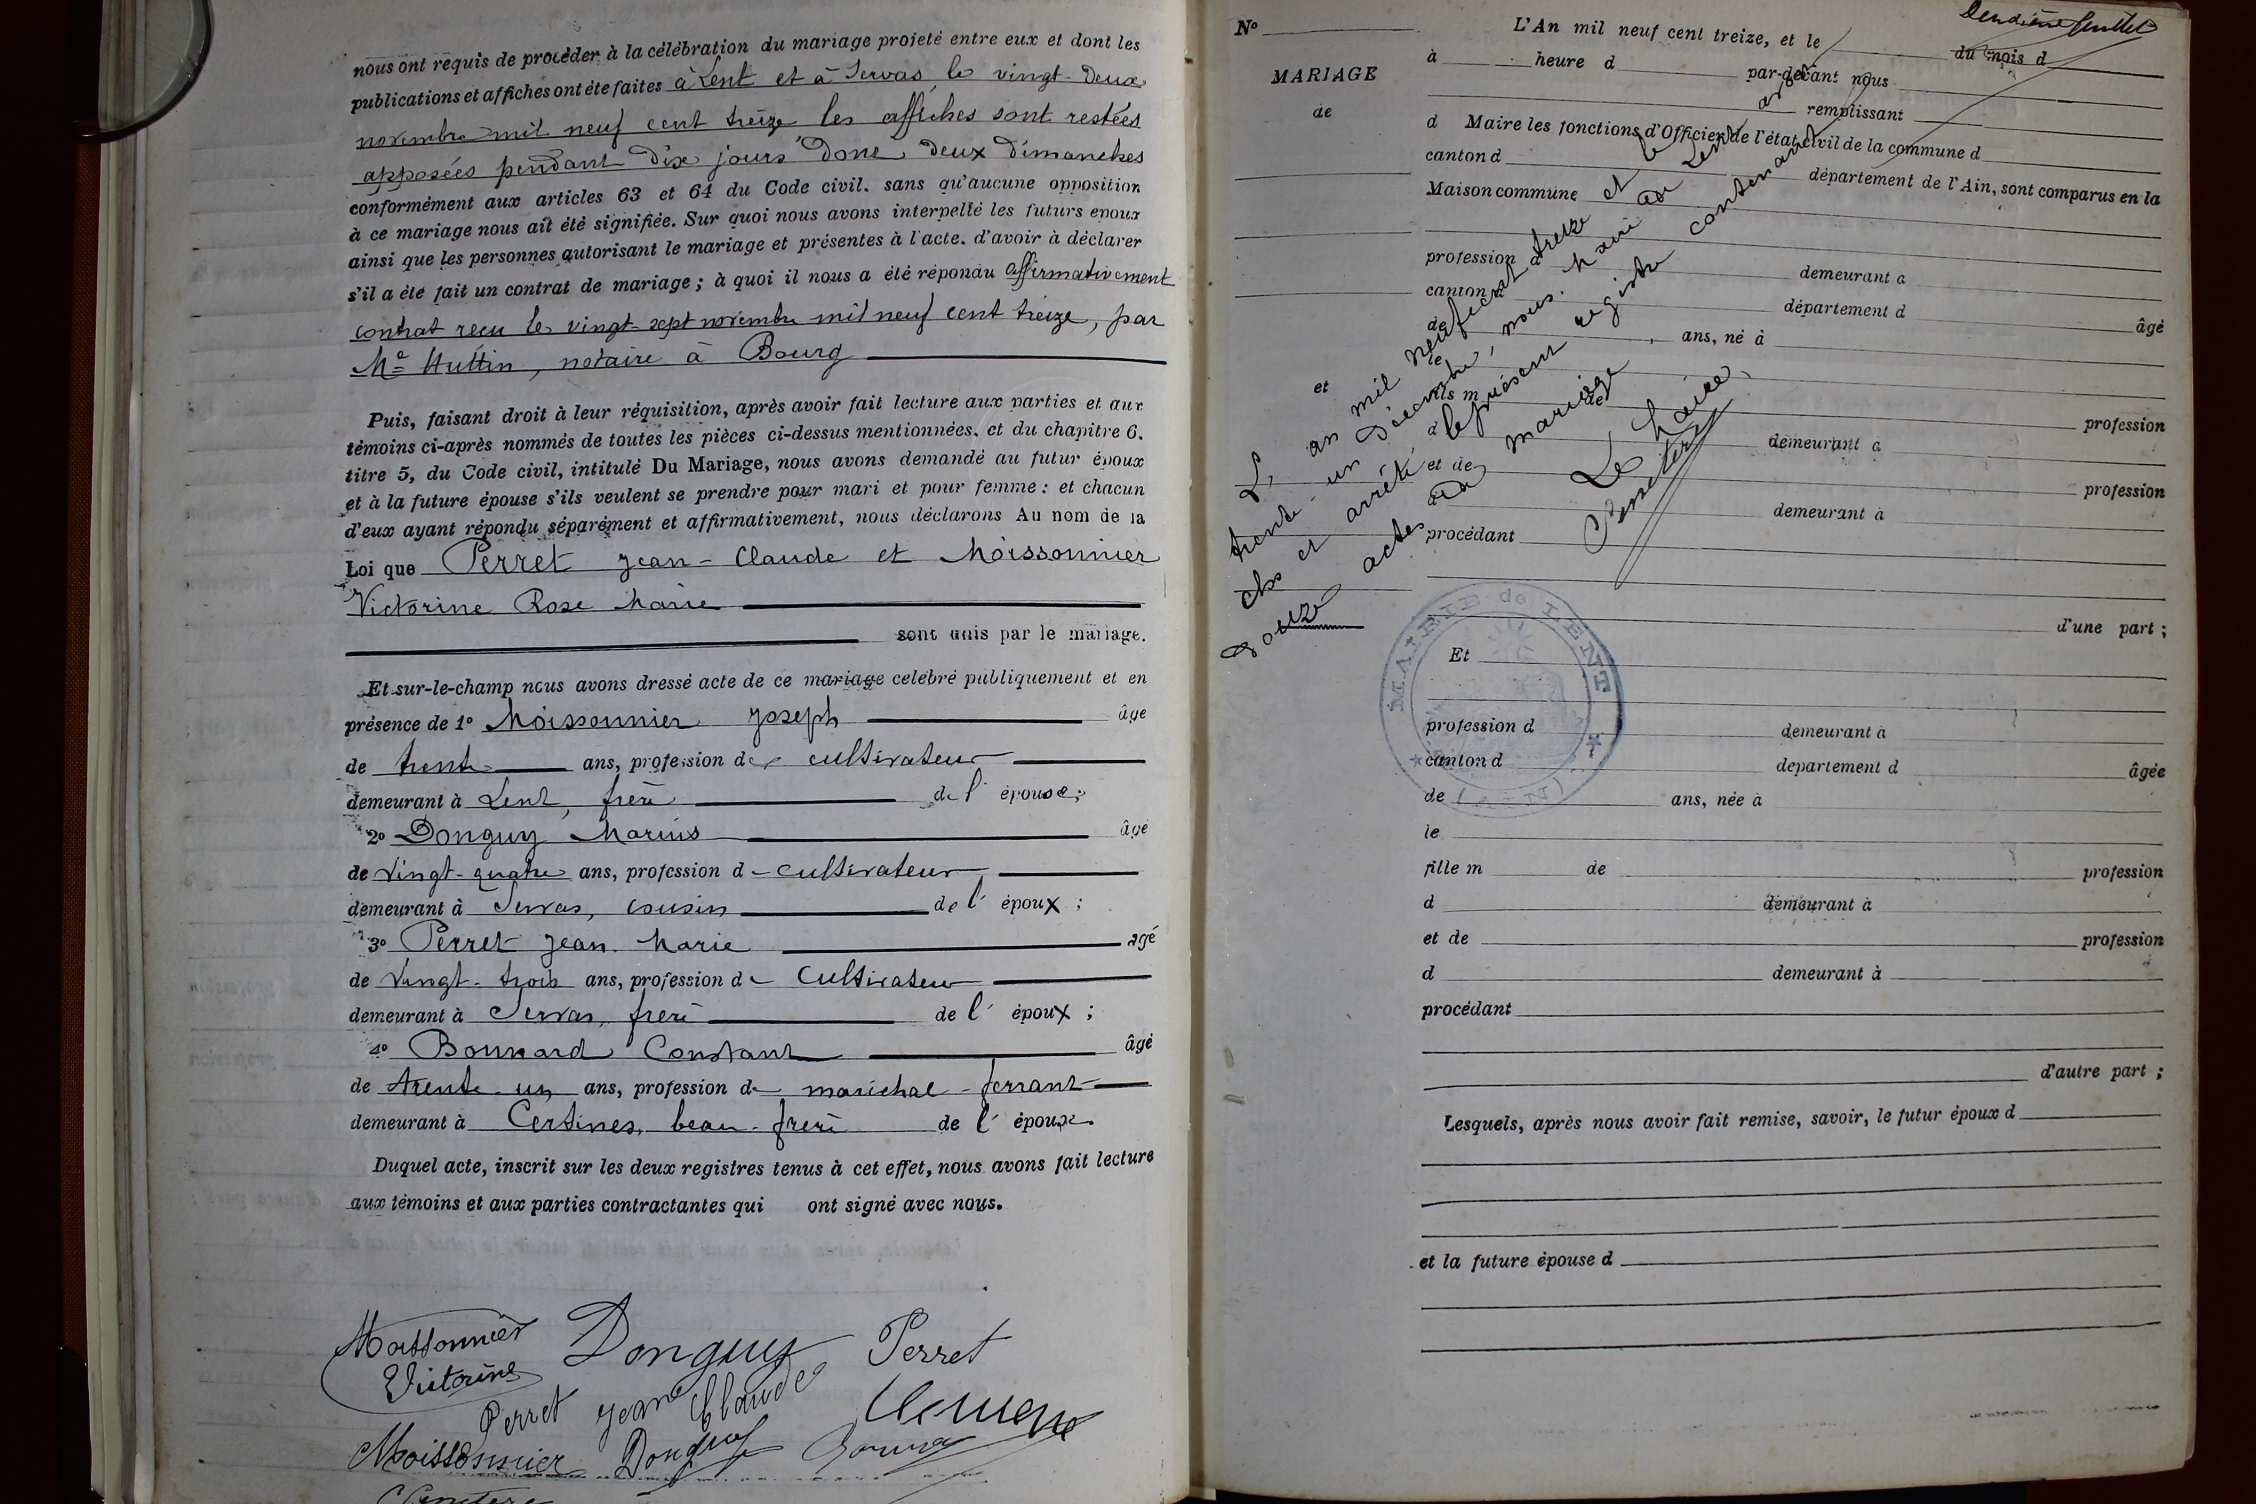 nous ont requis de procéder à la célébration du mariage projeté entre eux et dont les
publications et affiches ont été faites à Lent et à Servas le vingt-deux
novembre mil neuf cent treize les affiches sont restées
apposées pendant dix jours dont deux dimanches
conformément aux articles 63 et 64 du Code civil. sans qu'aucune opposition
à ce mariage nous ait été signifiée. Sur quoi nous avons interpellé les futurs époux
ainsi que les personnes autorisant le mariage et présentes à l'acte. d'avoir à déclarer
s'il a été fait un contrat de mariage ; à quoi il nous a été répondu affirmativement
contrat reçu le vingt-sept novembre mil neuf cent treize, par
Me Huttin, notaire à Bourg
Puis, faisant droit à leur réquisition, après avoir fait lecture aux parties et aux
témoins ci-après nommés de toutes les pièces ci-dessus mentionnées. et du chapitre 6.
titre 5, du Code civil, intitulé Du Mariage, nous avons demandé au futur époux
et à la future épouse s'ils veulent se prendre pour mari et pour femme : et chacun
d'eux ayant répondu séparément et affirmativement, nous déclarons Au nom de la
Loi que Perret Jean-Claude et Moissonnier
Victorine Rose Marie
sont unis par le mariage.
Et sur-le-champ nous avons dressé acte de ce mariage célébré publiquement et en
présence de 1º Moissonnier Joseph âgé
de trente ans, profession de cultivateur
demeurant à Lent, frère de l'épouse ;
2º Donguy Marius âgé
de vingt-quatre ans, profession d cultivateur
demeurant à Servas, cousin de l'époux ;
3º Perret Jean Marie âgé
de vingt-trois ans, profession d cultivateur
demeurant à Servas, frère de l'époux ;
4º Bonnard Constant âgé
de trente-un ans, profession de maréchal-ferrant
demeurant à Certines, beau-frère de l'époux.
Duquel acte, inscrit sur les deux registres tenus à cet effet, nous avons fait lecture
aux témoins et aux parties contractantes qui ont signé avec nous.
Moissonnier Donguy Perret
Victorine
Perret Jean Claude
Moissonnier Donguy
Nº
MARIAGE
de
et
L'An mil neuf cent treize, et le du mois d
à heure d par-devant nous
remplissant
d Maire les fonctions d'Officier de l'état civil de la commune d
canton d département de l'Ain, sont comparus en la
Maison commune
profession d demeurant à
canton d département d âgé
de ans, né à
le
fils m de profession
d demeurant à
et de profession
d demeurant à
procédant
d'une part ;
Et
profession d demeurant à
canton d département d âgée
de ans, née à
le
fille m de profession
d demeurant à
et de profession
d demeurant à
procédant
d'autre part ;
Lesquels, après nous avoir fait remise, savoir, le futur époux d
et la future épouse d
L'an mil neuf cent treize et le
trente-un Décembre, nous, Maire de Lent avons
clos et arrêté le présent registre contenant
douze actes de mariage
Le Maire,
MAIRIE de LENT
(AIN)